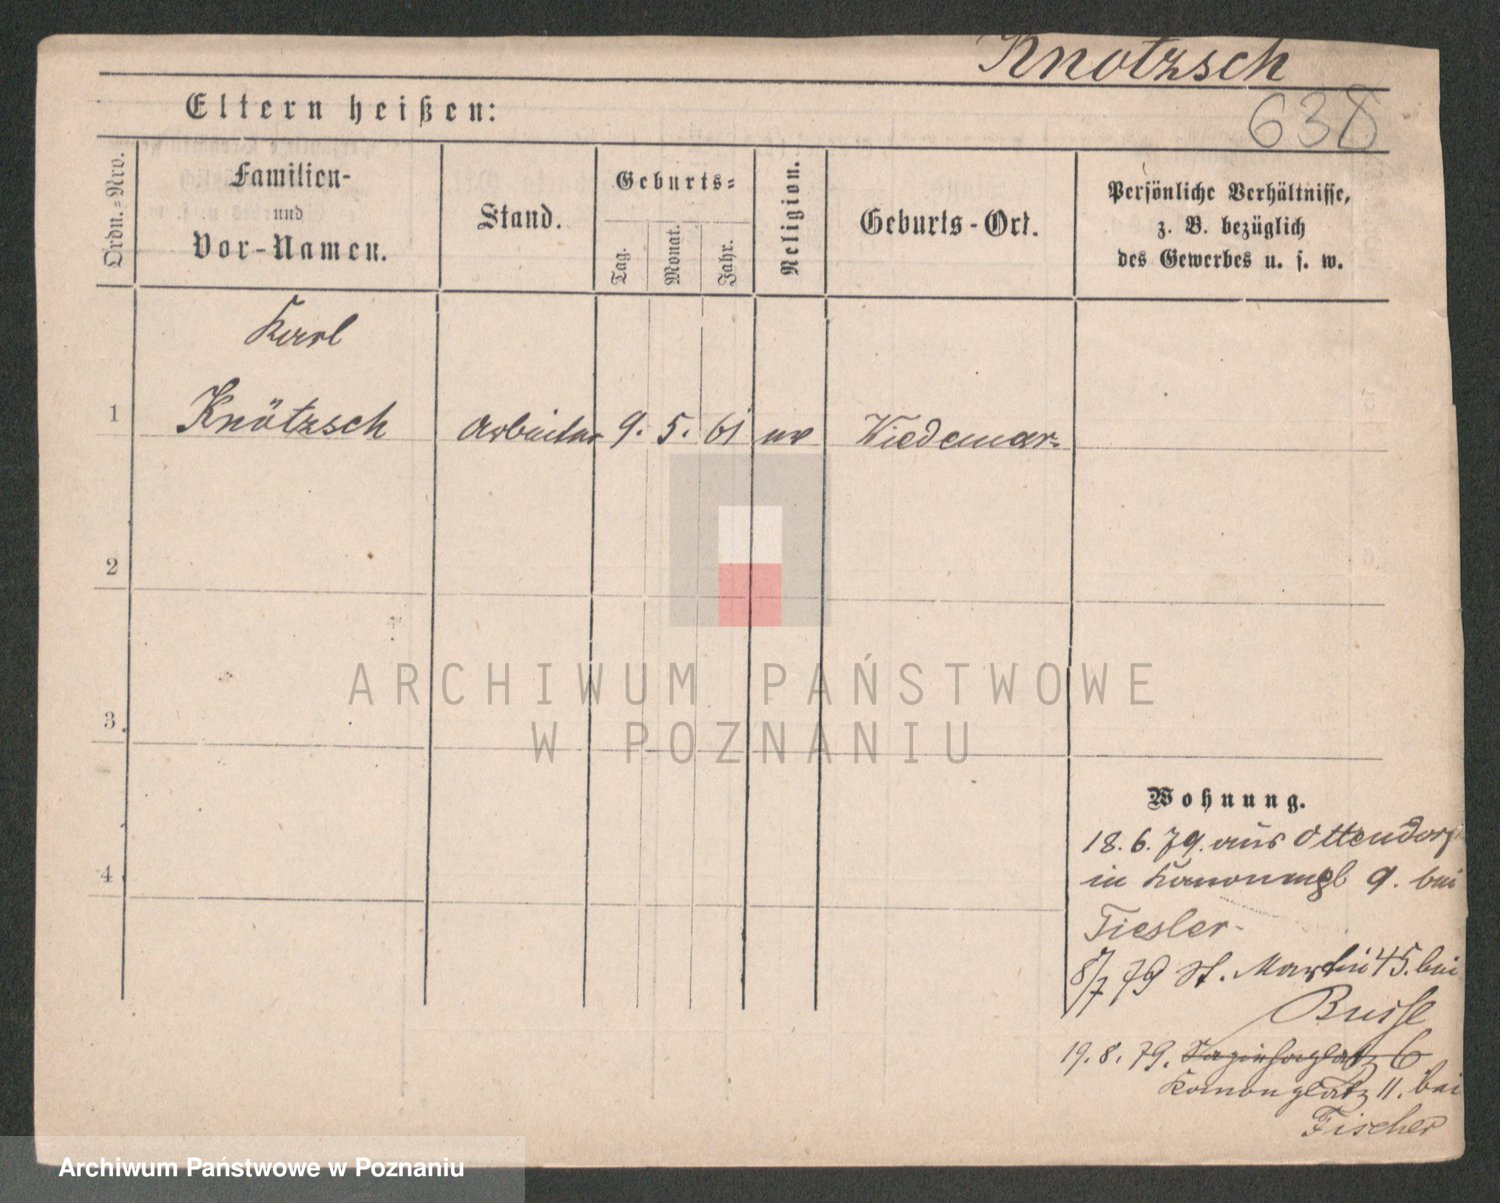 Knötzsch
638
Eltern heißen:
Ordn.-Nro.
Familien-
und
Vor-Namen.
Stand.
Geburts-
Tag.
Monat.
Jahr.
Religion.
Geburts-Ort.
Persönliche Verhältnisse,
z. B. bezüglich
des Gewerbes u. s. w.
Karl
1 Knötzsch Arbeiter 9. 5. 61 ev Wiedemar
2
3
4
Wohnung.
18. 6. 79. aus Ottendorf
in Kanonenpl 9. bei
Tiesler
8/7 79 St. Martin 45. bei
Busse
19. 8. 79. 6
Kanonplatz 11. bei
Fischer
ARCHIWUM PAŃSTWOWE
W POZNANIU
Archiwum Państwowe w Poznaniu